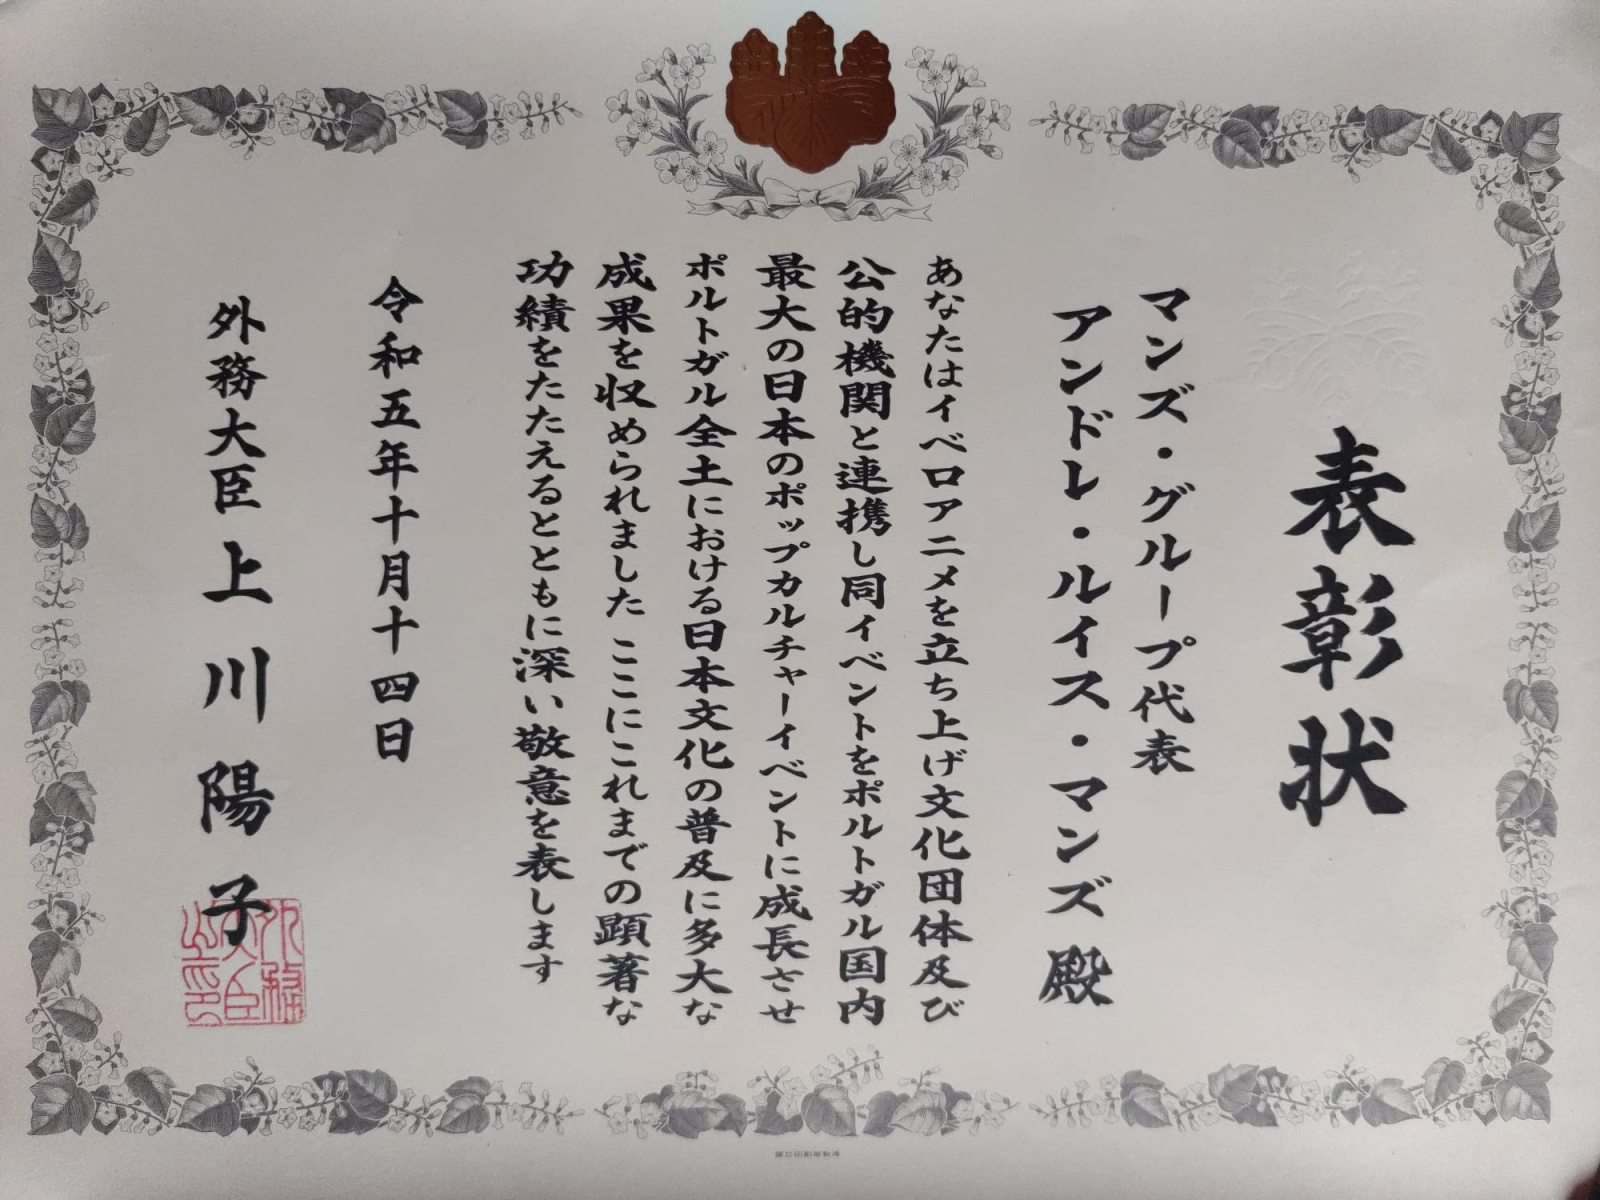 表彰状
マンズ・グループ代表
アンドレ・ルイス・マンズ 殿
あなたはイベロアニメを立ち上げ文化団体及び
公的機関と連携し同イベントをポルトガル国内
最大の日本のポップカルチャーイベントに成長させ
ポルトガル全土における日本文化の普及に多大な
成果を収められました ここにこれまでの顕著な
功績をたたえるとともに深い敬意を表します
令和五年十月十四日
外務大臣 上川陽子
外務大臣之印